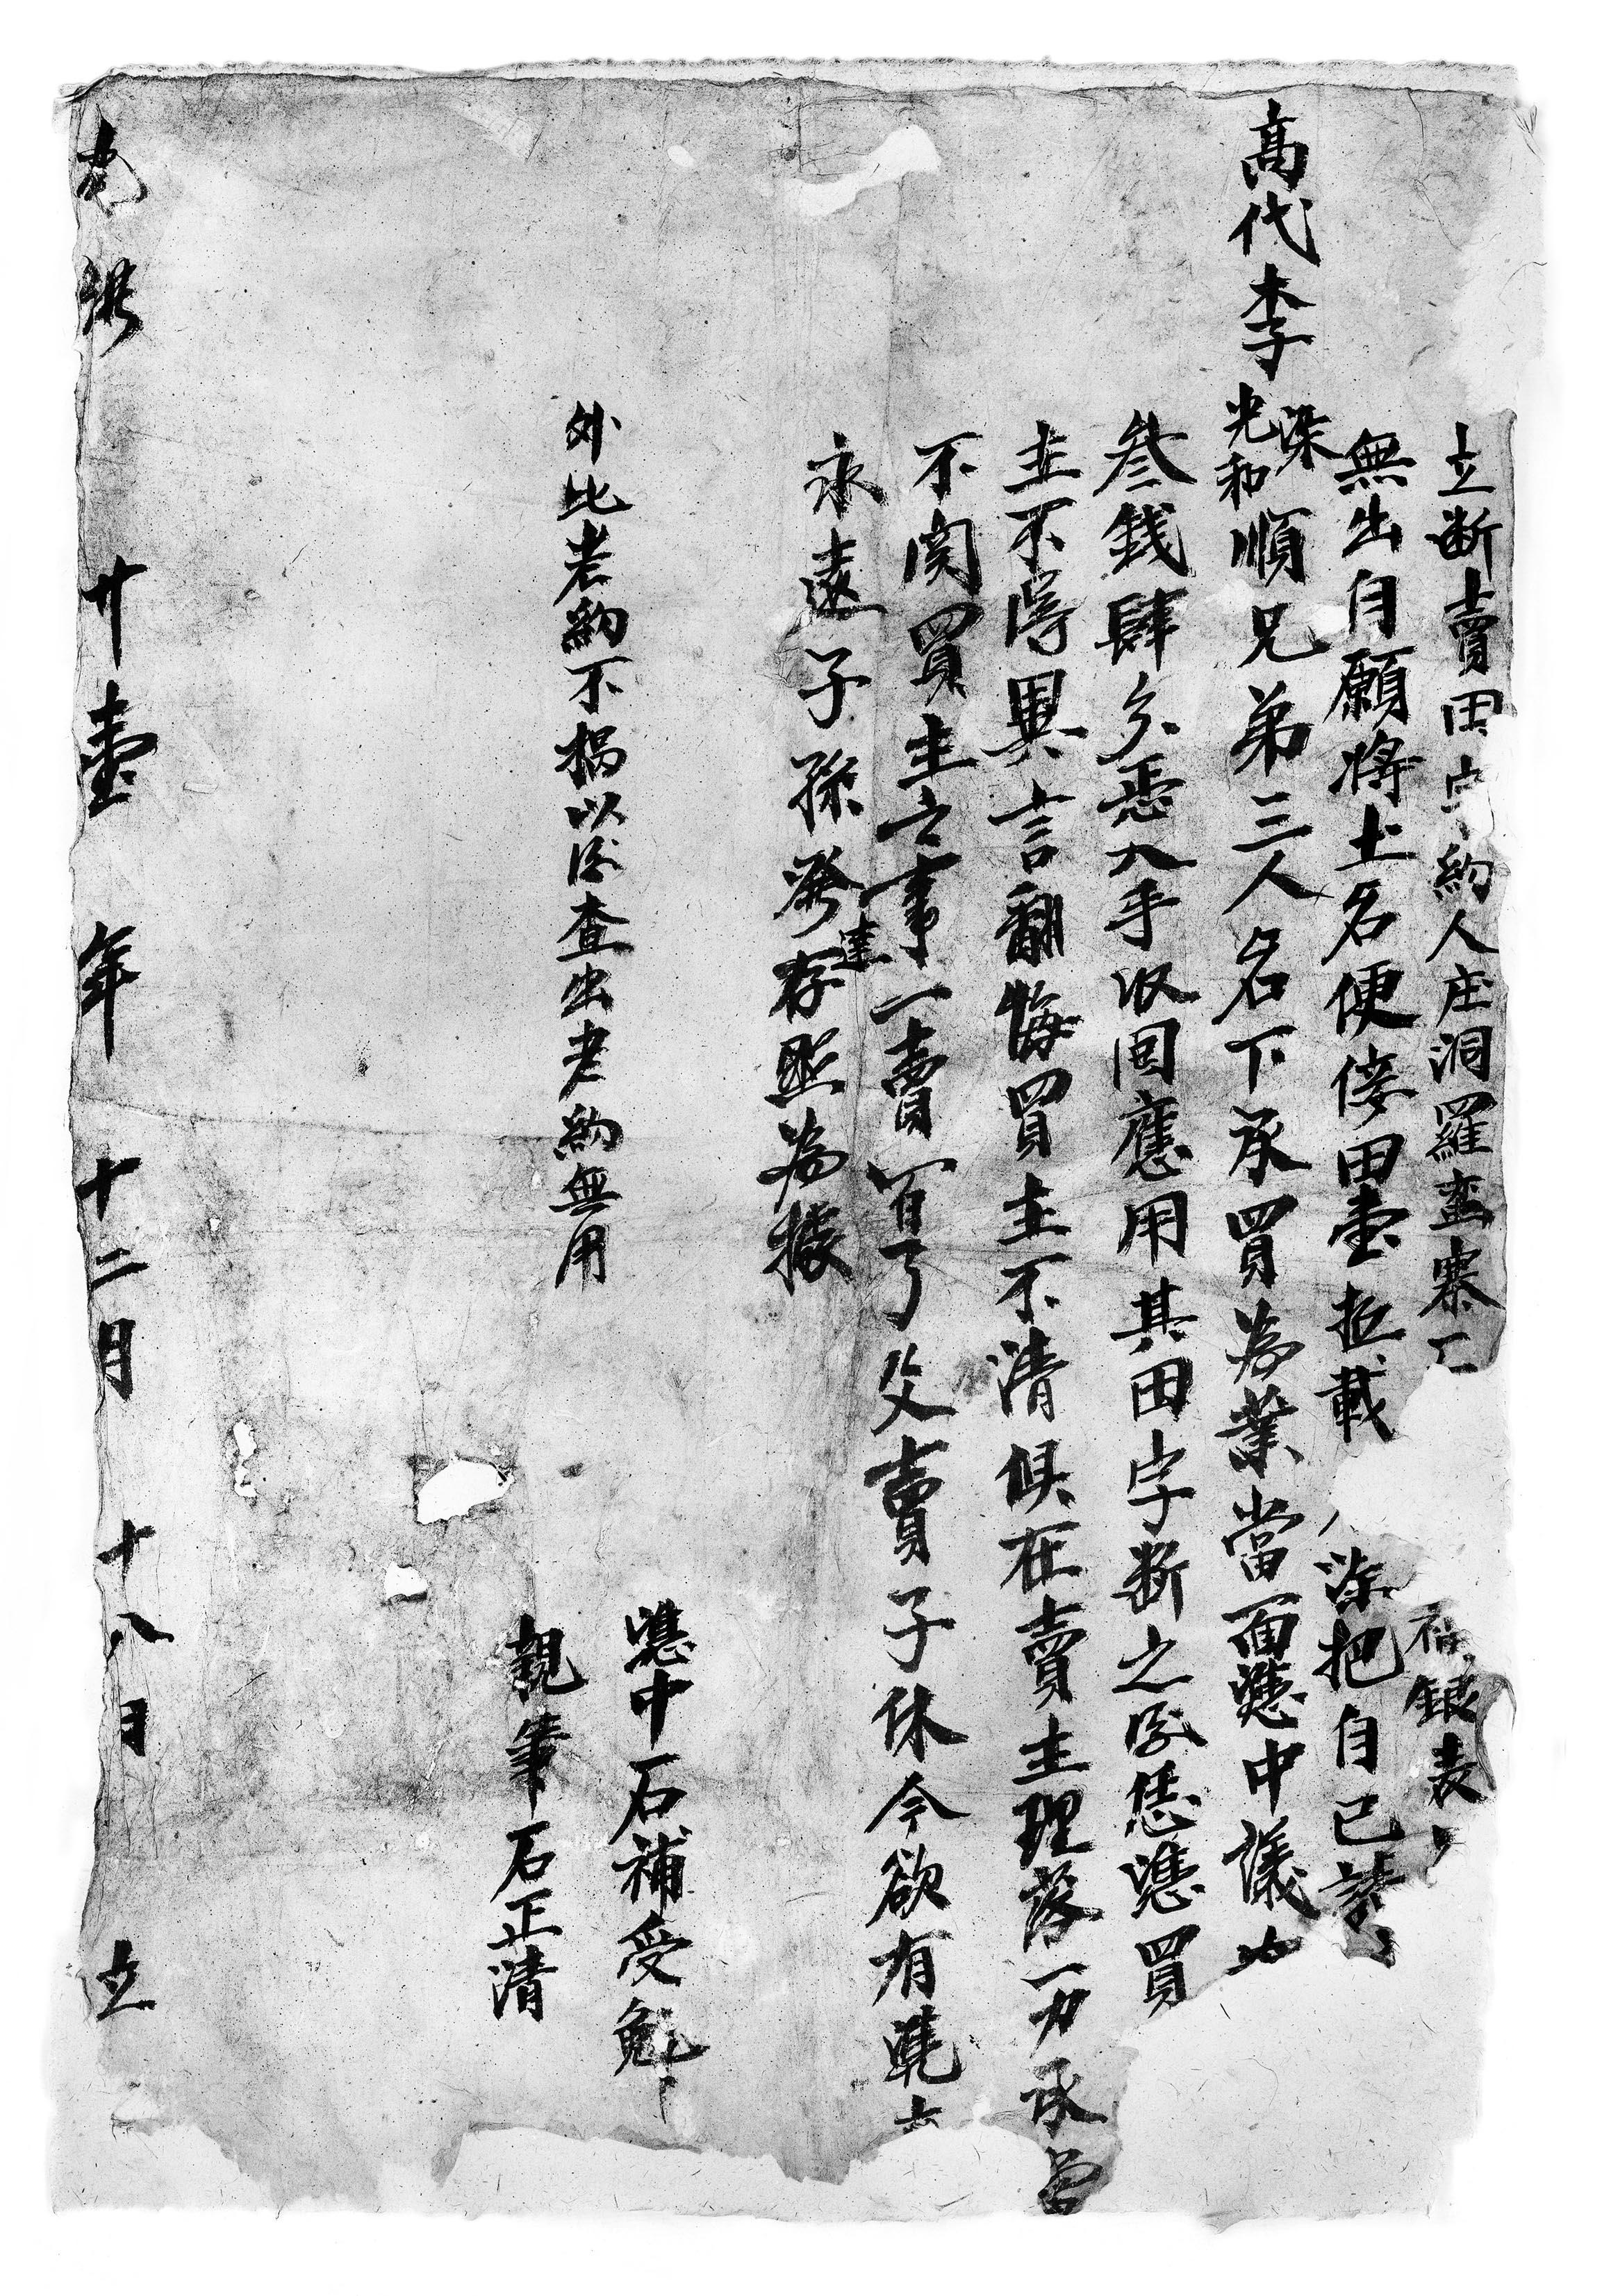 立斷賣田字約人庄洞羅蛮寨石
福銀
無出自願將土名便倿田壹坵載
把自己請
高代李光染和順兄弟三人名下承買為業當面憑中議
叁錢肆分悉入手收囬應用其田字斷之后恁憑買
主不得異言翻悔買主不清俱在賣主理落一力承当
不関買主之事一賣百了父賣子休今欲有憑立
永遠子孫發達存照為據
外比老約不揭以后查出老約無用
憑中石補受
親筆石正清
光緒廿壹年十二月十八日立